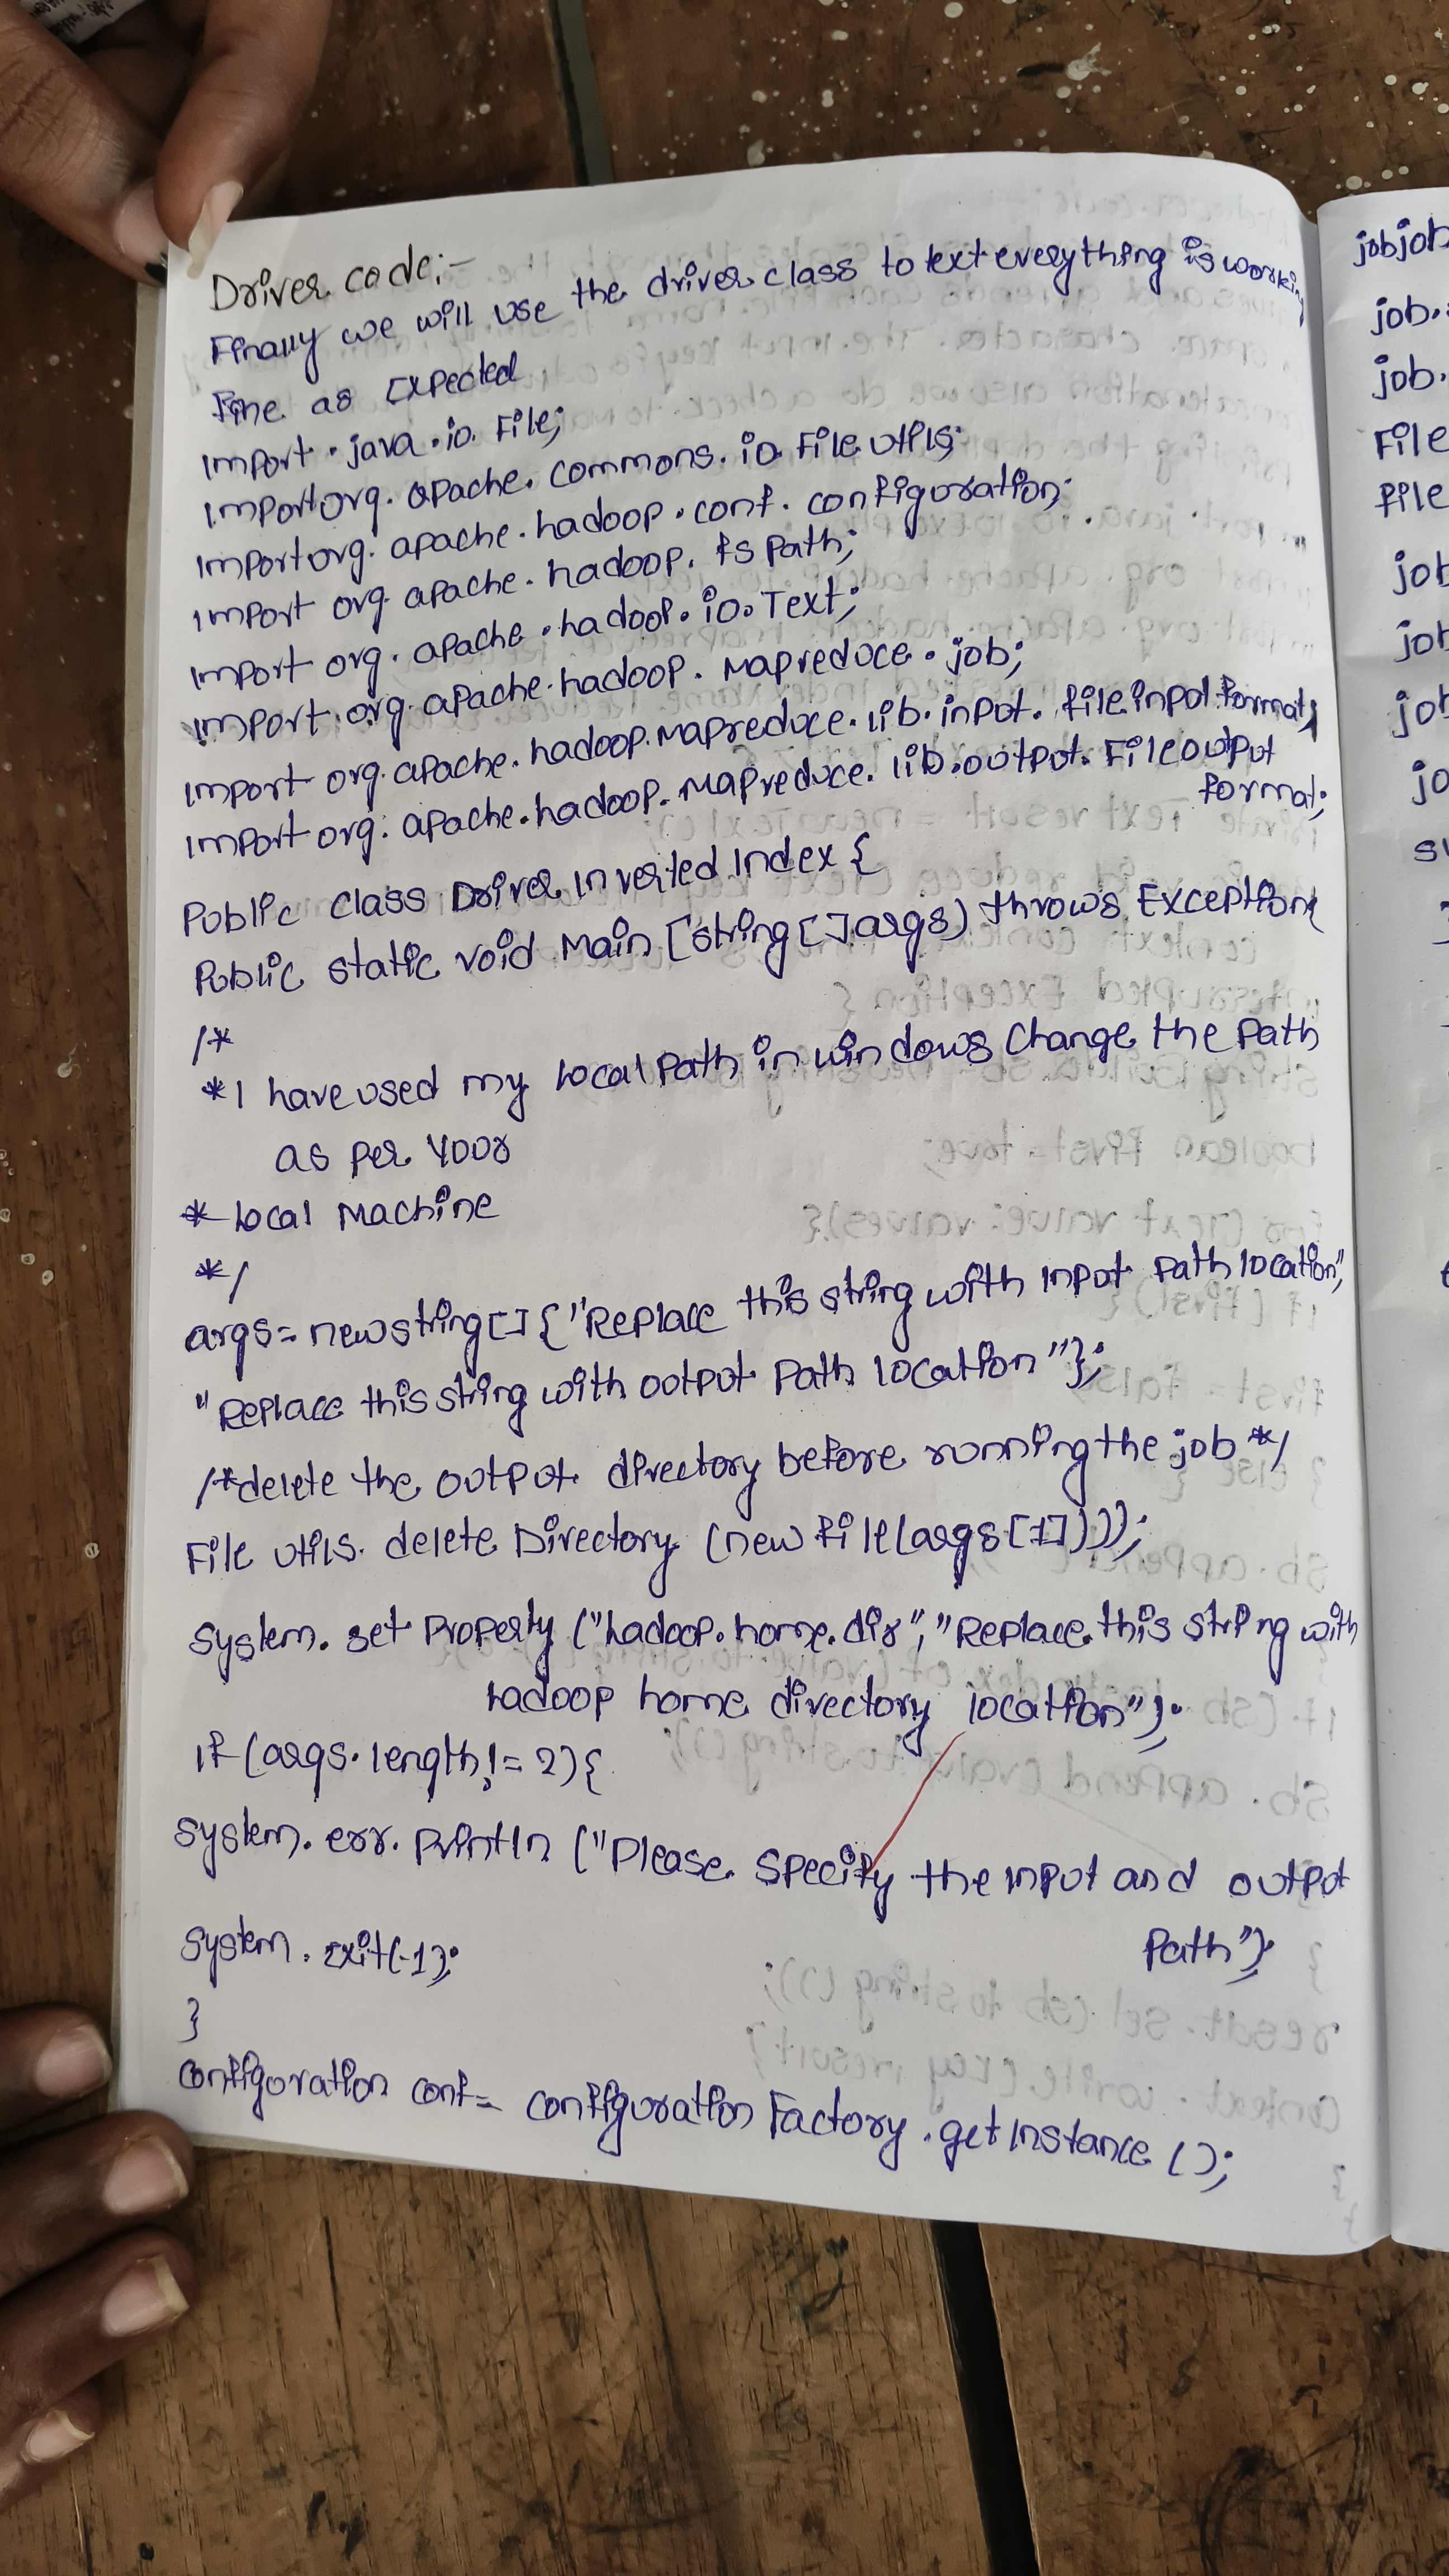 Driver code:-
Finally we will use the driver class to text everything is working
Fine as Expected
Import . java . io. File;
Import org. apache. commons. io. File utils;
Import org. apache. hadoop. conf. configuration;
Import org. apache. hadoop. fs path;
Import org. apache. hadoop. io. Text;
Import org. apache. hadoop. Mapreduce. job;
Import org. apache. hadoop. Mapreduce. lib. input. file input format;
Import org. apache. hadoop. Mapreduce. lib. output. File output
format;
Public class Driver Inverted Index {
Public static void Main [string [] args) throws Exception{
/*
*I have used my local path in windows change the path
as per your
* local Machine
*/
args= new string[] {"Replace this string with Input path location",
"Replace this string with output path location"};
/*delete the output directory before running the job */
File utils. delete Directory (new file(args [1]));
System. set Property ("hadoop. home. dir", "Replace this string with
hadoop home directory location");
if (args. length != 2) {
System. err. println ("Please specify the input and output
Path");
System. exit(-1);
}
Configuration conf= configuration Factory. get Instance ();
jobjob
job.
job.
File
file
job
job
job
jo